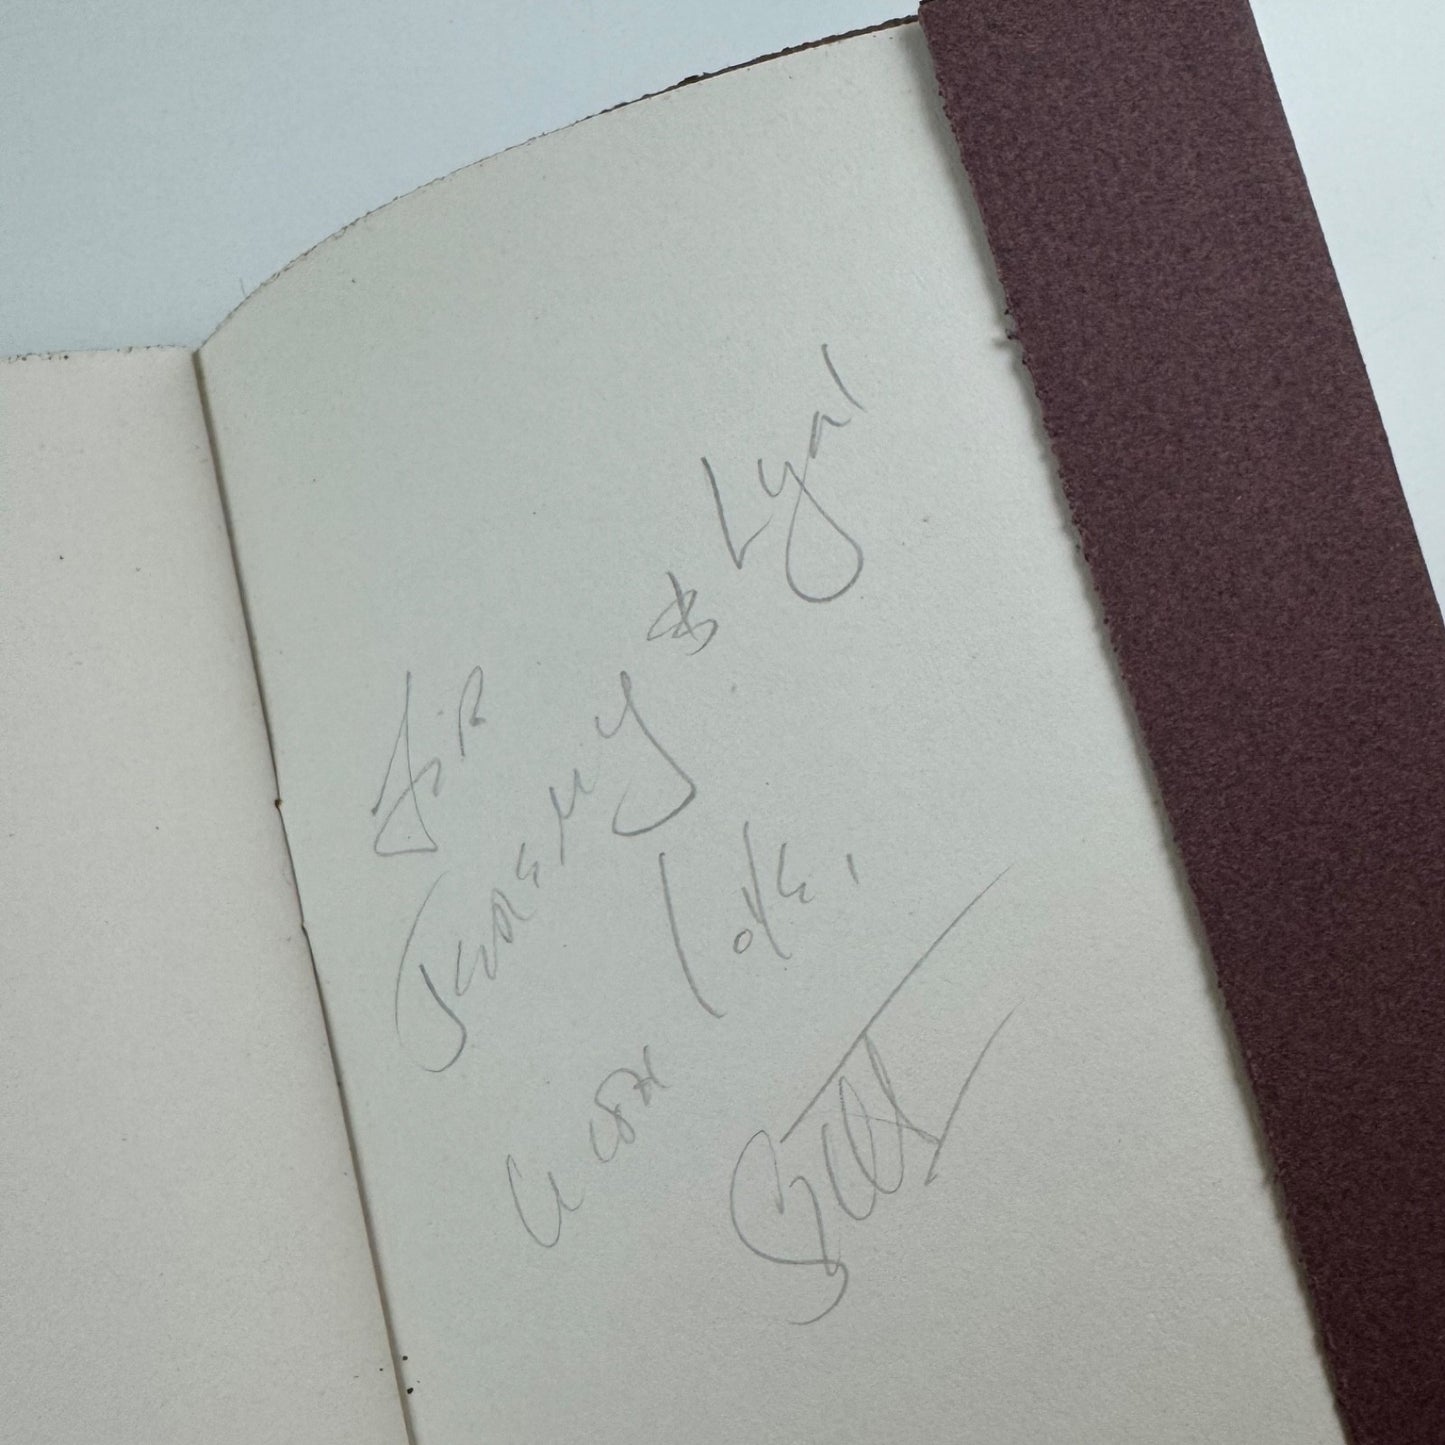 for
Jeremy & Lyn
with love,